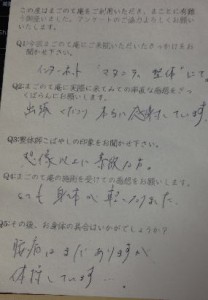 この度はまごのて庵をご利用いただき、まことに有難う御座いました。アンケートのご協力よろしくお願いいたします。
Q1:今回まごのて庵にご来院いただいたきっかけをお聞かせ下さい。
インターネット 「マタニティ 整体」にて。
Q2:まごのて庵に実際に来てみての率直な感想をざっくばらんにお願いします。
出張 本当に感謝しています。
Q3:整体師こばやしの印象をお聞かせ下さい。
想像以上に 方。
Q4:まごのて庵の施術を受けての感想をお願いします。
とても身体が軽くなりました。
Q5:その後、お身体の具合はいかがでしょうか?
腰痛はまだありますが
体 しています…。